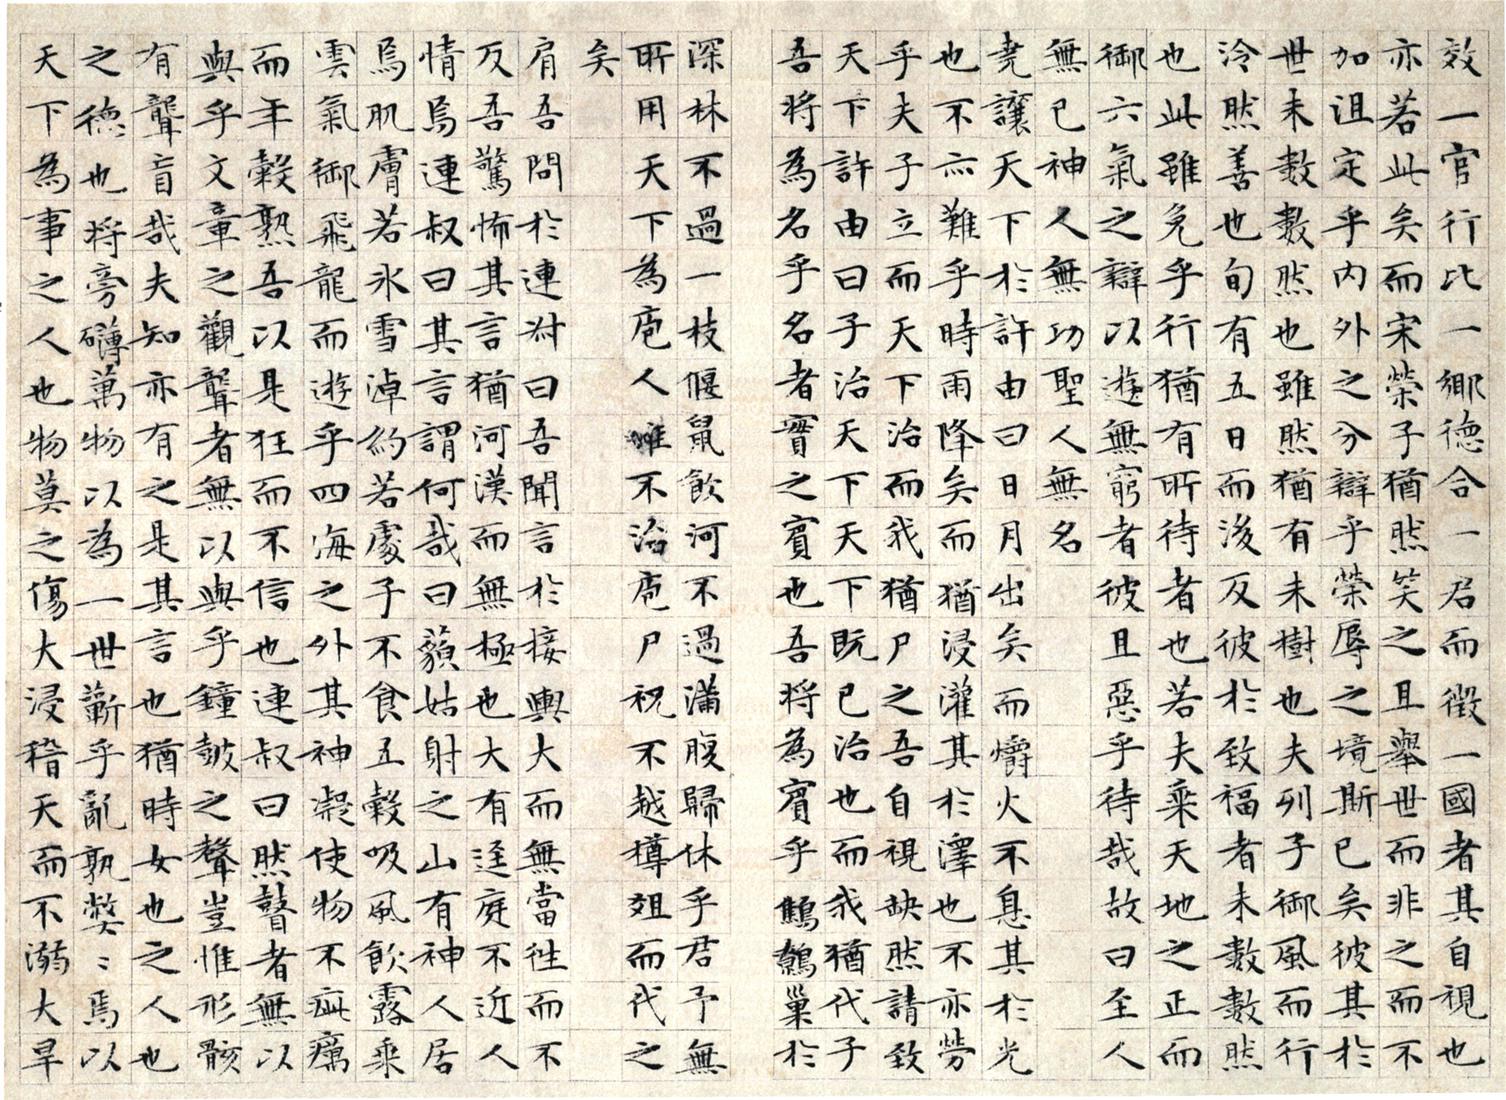 效一官行比一鄉德合一君而徵一國者其自視也
亦若此矣而宋榮子猶然笑之且舉世而非之而不
加沮定乎內外之分辯乎榮辱之境斯已矣彼其於
世未數數然也雖然猶有未樹也夫列子御風而行
泠然善也旬有五日而後反彼於致福者未數數然
也此雖免乎行猶有所待者也若夫乘天地之正而
御六氣之辯以遊無窮者彼且惡乎待哉故曰至人
無己神人無功聖人無名
堯讓天下於許由曰日月出矣而爝火不息其於光
也不亦難乎時雨降矣而猶浸灌其於澤也不亦勞
乎夫子立而天下治而我猶尸之吾自視缺然請致
天下許由曰子治天下天下既已治也而我猶代子
吾將為名乎名者實之賓也吾將為賓乎鷦鷯巢於
深林不過一枝偃鼠飲河不過滿腹歸休乎君予無
所用天下為庖人雖不治庖尸祝不越樽俎而代之
矣
肩吾問於連叔曰吾聞言於接輿大而無當往而不
反吾驚怖其言猶河漢而無極也大有逕庭不近人
情焉連叔曰其言謂何哉曰藐姑射之山有神人居
焉肌膚若冰雪淖約若處子不食五穀吸風飲露乘
雲氣御飛龍而遊乎四海之外其神凝使物不疵癘
而年穀熟吾以是狂而不信也連叔曰然瞽者無以
與乎文章之觀聾者無以與乎鐘鼓之聲豈惟形骸
有聾盲哉夫知亦有之是其言也猶時女也之人也
之德也將旁礴萬物以為一世蘄乎亂孰弊〻焉以
天下為事之人也物莫之傷大浸稽天而不溺大旱